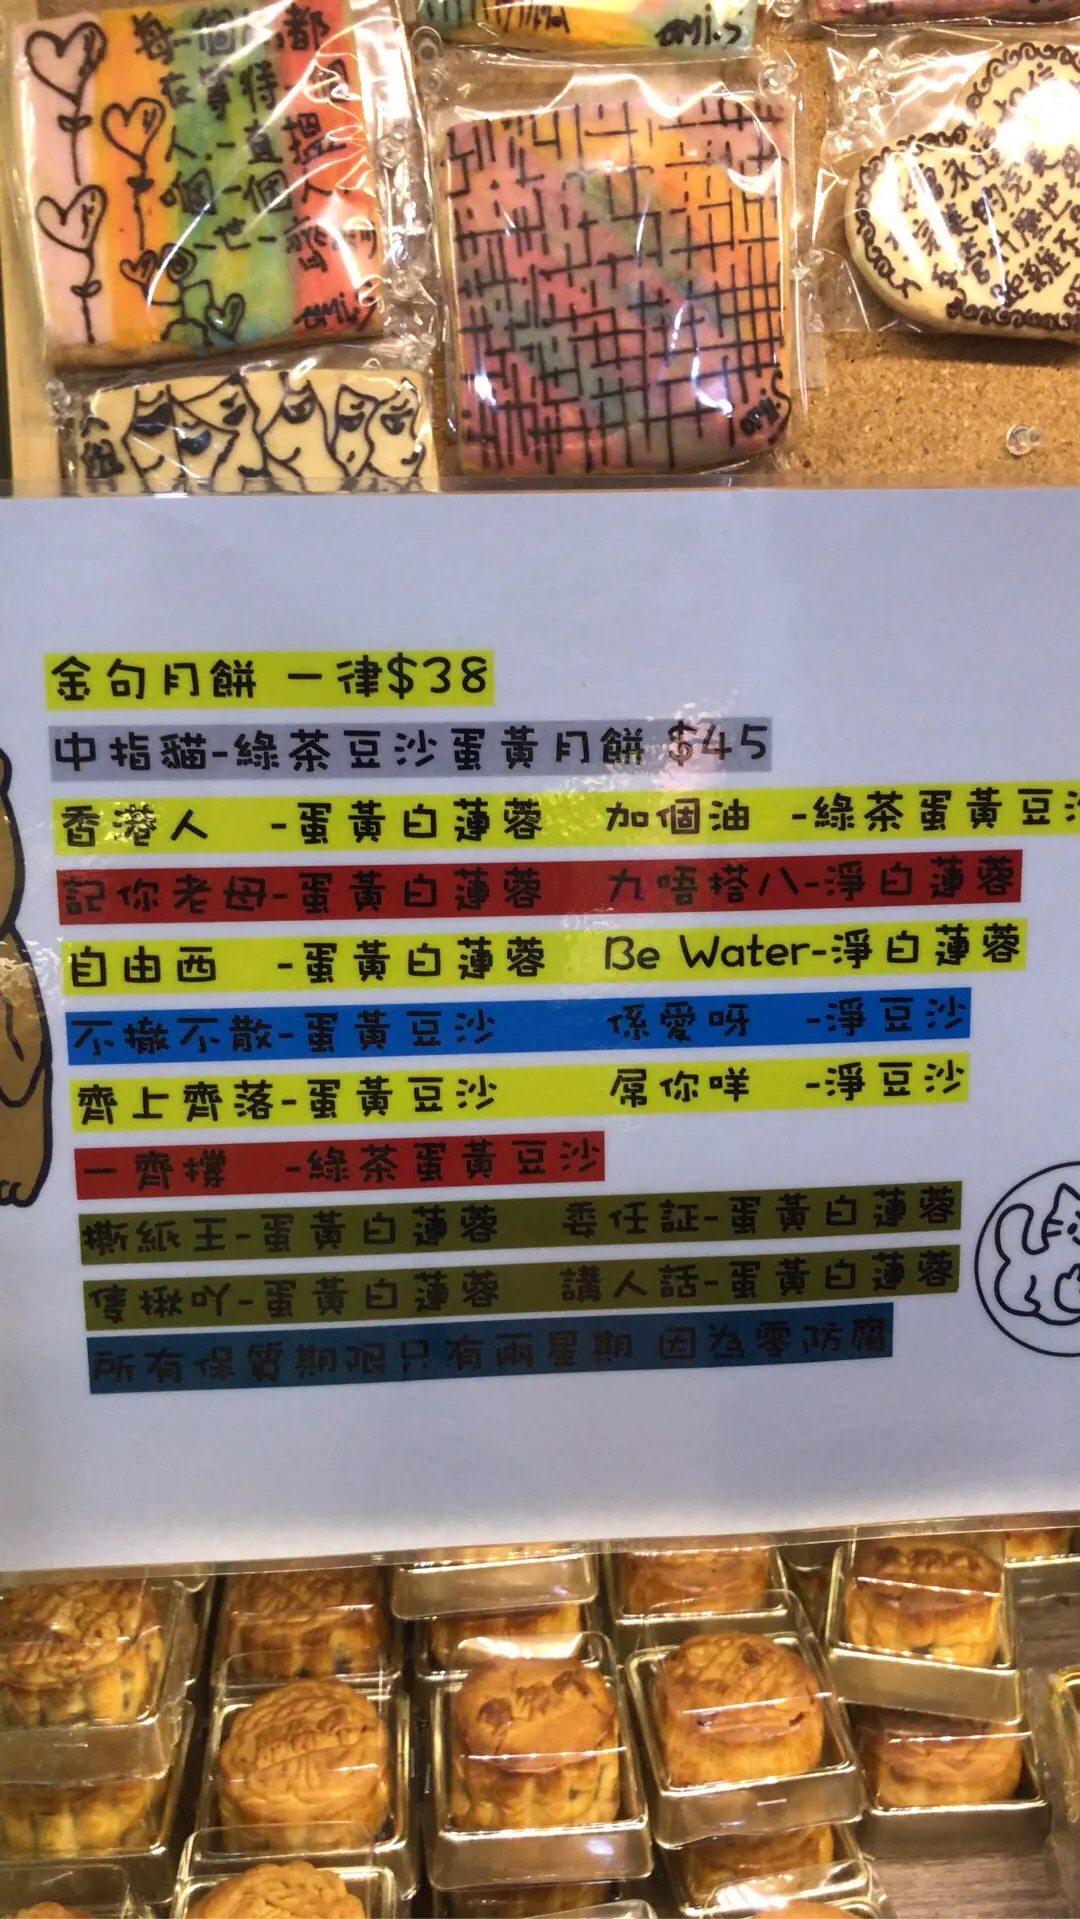 每一個
都
在等待
一直
一個
也
ami.S
ami.S
ami.S
金句月餅 一律$38
中指貓-綠茶豆沙蛋黃月餅 $45
香港人 -蛋黃白蓮蓉 加個油 -綠茶蛋黃豆沙
記你老母-蛋黃白蓮蓉 九唔搭八-淨白蓮蓉
自由西 -蛋黃白蓮蓉 Be Water-淨白蓮蓉
不撤不散-蛋黃豆沙 係愛呀 -淨豆沙
齊上齊落-蛋黃豆沙 屌你咩 -淨豆沙
一齊撐 -綠茶蛋黃豆沙
撕紙王-蛋黃白蓮蓉 委任証-蛋黃白蓮蓉
隻揪吖-蛋黃白蓮蓉 講人話-蛋黃白蓮蓉
所有保質期限只有兩星期 因為零防腐